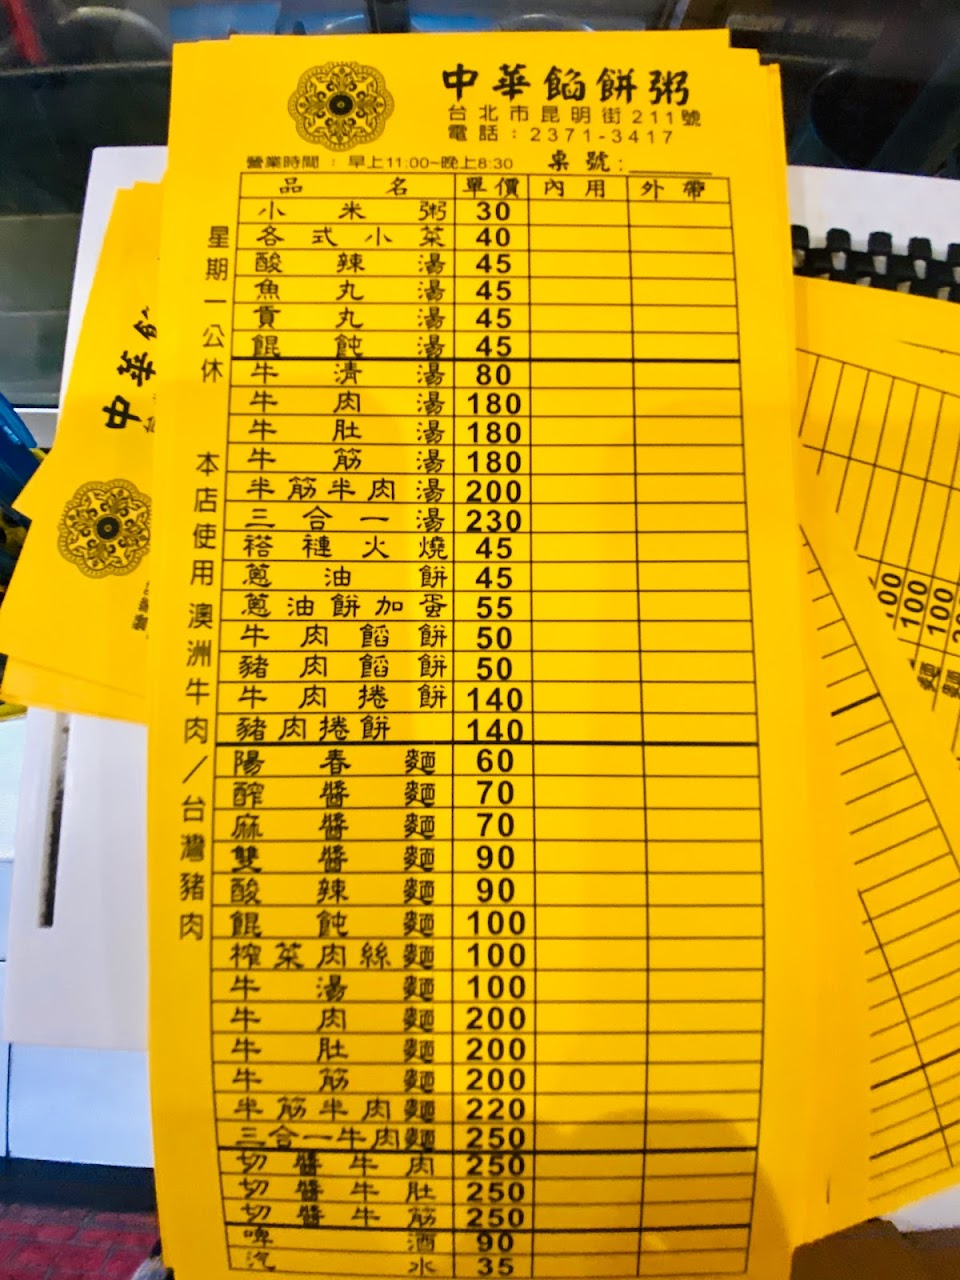 中華餡餅粥
台北市昆明街211號
電話：2371-3417
營業時間：早上11:00~晚上8:30 桌號：
品名 單價 內用 外帶
小米粥 30
各式小菜 40
酸辣湯 45
魚丸湯 45
貢丸湯 45
餛飩湯 45
牛清湯 80
牛肉湯 180
牛肚湯 180
牛筋湯 180
半筋半肉湯 200
三合一湯 230
褡褳火燒 45
蔥油餅 45
蔥油餅加蛋 55
牛肉餡餅 50
豬肉餡餅 50
牛肉捲餅 140
豬肉捲餅 140
陽春麵 60
酢醬麵 70
麻醬麵 70
雙醬麵 90
酸辣麵 90
餛飩麵 100
榨菜肉絲麵 100
牛湯麵 100
牛肉麵 200
牛肚麵 200
牛筋麵 200
半筋半肉麵 220
三合一牛肉麵 250
切醬牛肉 250
切醬牛肚 250
切醬牛筋 250
啤酒 90
汽水 35
星期一公休
本店使用澳洲牛肉/台灣豬肉
中華
100
100
100
麵